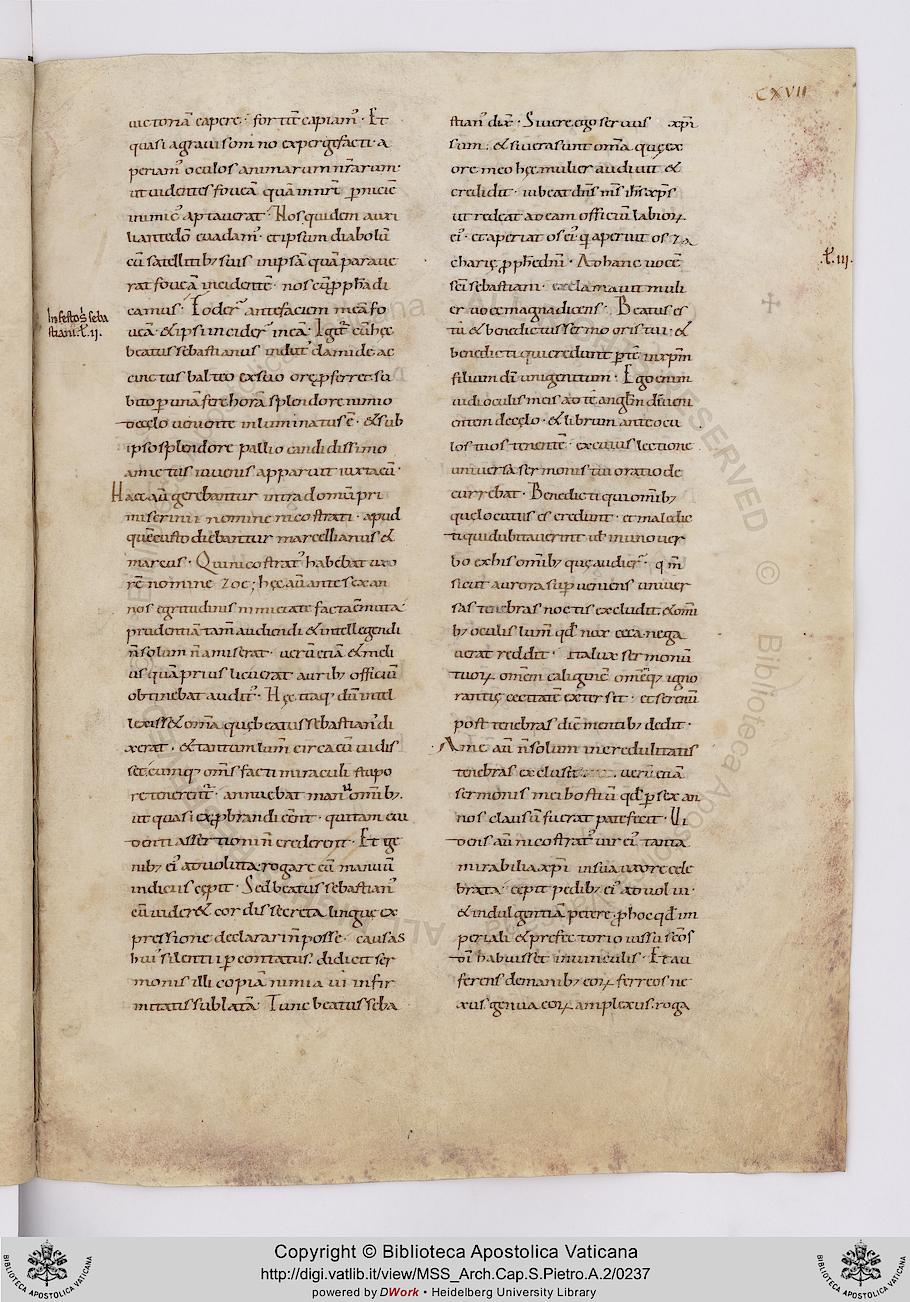 CXVII
uictoriā capere· fortit̄ capiam᷒· Et
quasi a graui somno expergefacti· a
periam᷒ oculos animarum nr̄arum·
ut uidentes foueā quā in nr̄i ꝑniciē
inimic᷒ aptauerat· Nos quidem auxi
liante dō euadam᷒· et ipsum diabolū
cū satellitib; suis in ipsā quā paraue
rat foueā incidentē· nos cū ꝓph̄a di
camus· Foder᷒ ante faciem meā fo
ueā· & ipsi incider᷒ in eā· Igit᷒ cū hęc
beatus sebastianus indut᷒ clamide ac
cinctus balteo ex suo ore ꝓferret· su
bito ꝑ unā fere horā splendore nimio
de cęlo ueniente inluminatus ē· & sub
ipso splendore pallio candidissimo
amictus iuuenis apparuit iuxta eū·
Haec aū gerebantur intra domū pri
miscrinii nomine nicostrati· apud
quē custodiebantur marcellianus &
marcus· Qui nicostrat᷒ habebat uxo
rē nomine zoe; hęc aū ante sex an
nos egritudinis nimietate facta ē muta·
prudentiā tam̄ audiendi & intellegendi
n̄ solum n̄ amiserat· uerū etiā & meli
us quā prius licuerat aurib; officiū
obtinebat audit᷒· Hęc itaq· dū intel
lexiss& om̄a quę beatus sebastian᷒ di
xerat· & tantum lum̄ circa eū uidis
set· cumq· om̄s facti miraculi stupo
re tenerent᷒· annuebat man᷒ om̄ib;·
ut quasi exꝓbrandi eēnt· qui tam eui
denti assertioni n̄ crederent· Et ge
nib; ei᷒ aduoluta· rogare eū manuū
indiciis cępit· Sed beatus sebastian᷒
cū uider& cordis secreta linguę ex
pressione declarari n̄ posse· causas
hui᷒ silentii ꝑcontatus· didicit ser
monis illi copiā nimia ui infir
mitatis sublatā· Tunc beatus seba
In festo s̄ seba
stiani· ł. ij.
stian᷒ dix̄· Si uere ego seruus xp̄i
sum· & si uera sunt om̄a quę ex
ore meo hęc mulier audiuit &
credidit· iubeat dn̄s m̄s ih̄s xp̄s
ut redeat ad eam officiū labioꝝ
ei᷒· et aperiat os ei᷒ q̄ aperuit os za
charię ꝓph̄e dn̄i· Ad hanc uocē
sc̄i sebastiani· exclamauit muli
er uoce magna dicens· Beatus es
tu & benedictus sermo oris tui· &
benedicti qui credunt ꝑ te in xp̄m
filium dī unigenitum· Ego enim
uidi oculis meis ad te angl̄m dī ueni
entem de cęlo· & librum ante ocu
los tuos tenentē· ex cuius lectione
uniuersa sermonis tui oratio de
currebat· Benedicti qui om̄ib;
quę locutus es credunt· et maledic
ti qui dubitauerint uł in uno uer
bo ex his om̄ib; quę audier᷒· q̄m
sicut aurora suꝑueniens uniuer
sas tenebras noctis excludit· & om̄i
b; oculis lum̄ qđ nox ceca nega
uerat reddit· ita lux sermonū
tuoꝝ omēm caliginē om̄ēq; igno
rantię cecitatē extersit· et serenū
post tenebras diē mentib; dedit·
A me aū n̄ solum incredulitatis
tenebras exclusit· uerū etiā
sermonis mei hostiū qđ ꝑ sex an
nos clausū fuerat patefecit· Ui
dens aū nicostrat᷒ uir ei᷒ tanta
mirabilia xp̄i in sua uxore cele
brata· cepit pedib; ei᷒ aduolui·
& indulgentiā petere· ꝓ hoc qđ im
periali & prefectorio iussu sc̄os
dī habuisset in uinculis· Et au
ferens de manib; eoꝝ ferreos ne
xus· genua eoꝝ amplexus· roga
ł. iij.
Copyright © Biblioteca Apostolica Vaticana
http://digi.vatlib.it/view/MSS_Arch.Cap.S.Pietro.A.2/0237
powered by DWork • Heidelberg University Library
BIBLIOTECA APOSTOLICA VATICANA
BIBLIOTECA APOSTOLICA VATICANA